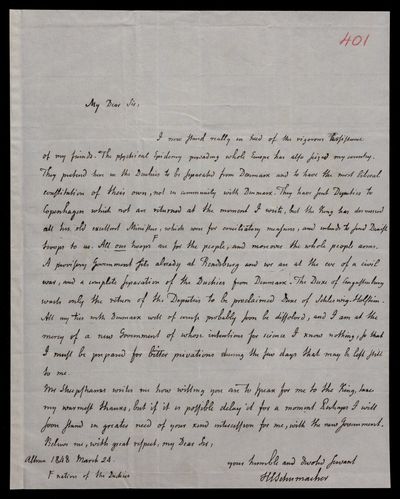 401
My Dear Sir,
I now stand really in need of the vigorous assistance
of my friends. The psychical Epidemy pervading whole Europe has also seized my country.
They pretend here in the Duchies to be separated from Denmark and to have the most liberal
constitution of their own, not in community with Denmark. They have sent Deputies to
Copenhagen which not are returned at the moment I write, but the King has dismissed
all his old excellent Ministers, which were for conciliatory measures, and intends to send Danish
troops to us. All our troops are for the people, and moreover the whole people arms.
A provisory Government sits already at Rendsburg and we are at the eve of a civil
war, and a complete separation of the Duchies from Denmark. The Duke of Augustenburg
waits only the return of the Deputies to be proclaimed Duke of Schleswig-Holstein.
All my ties with Denmark will of course probably soon be dissolved, and I am at the
mercy of a new Government of whose intentions for science I know nothing, so that
I must be prepared for bitter privations during the few days that may be left still
to me.
Mrs Sheepshanks writes me how willing you are to speak for me to the King, take
my warmest thanks, but if it is possible delay it for a moment. Perhaps I will
soon stand in greater need of your kind intercession for me, with the new Government.
Believe me, with great respect, my Dear Sir,
your humble and devoted servant
HCSchumacher
Altona 1848 March 24.
natives of the Duchies